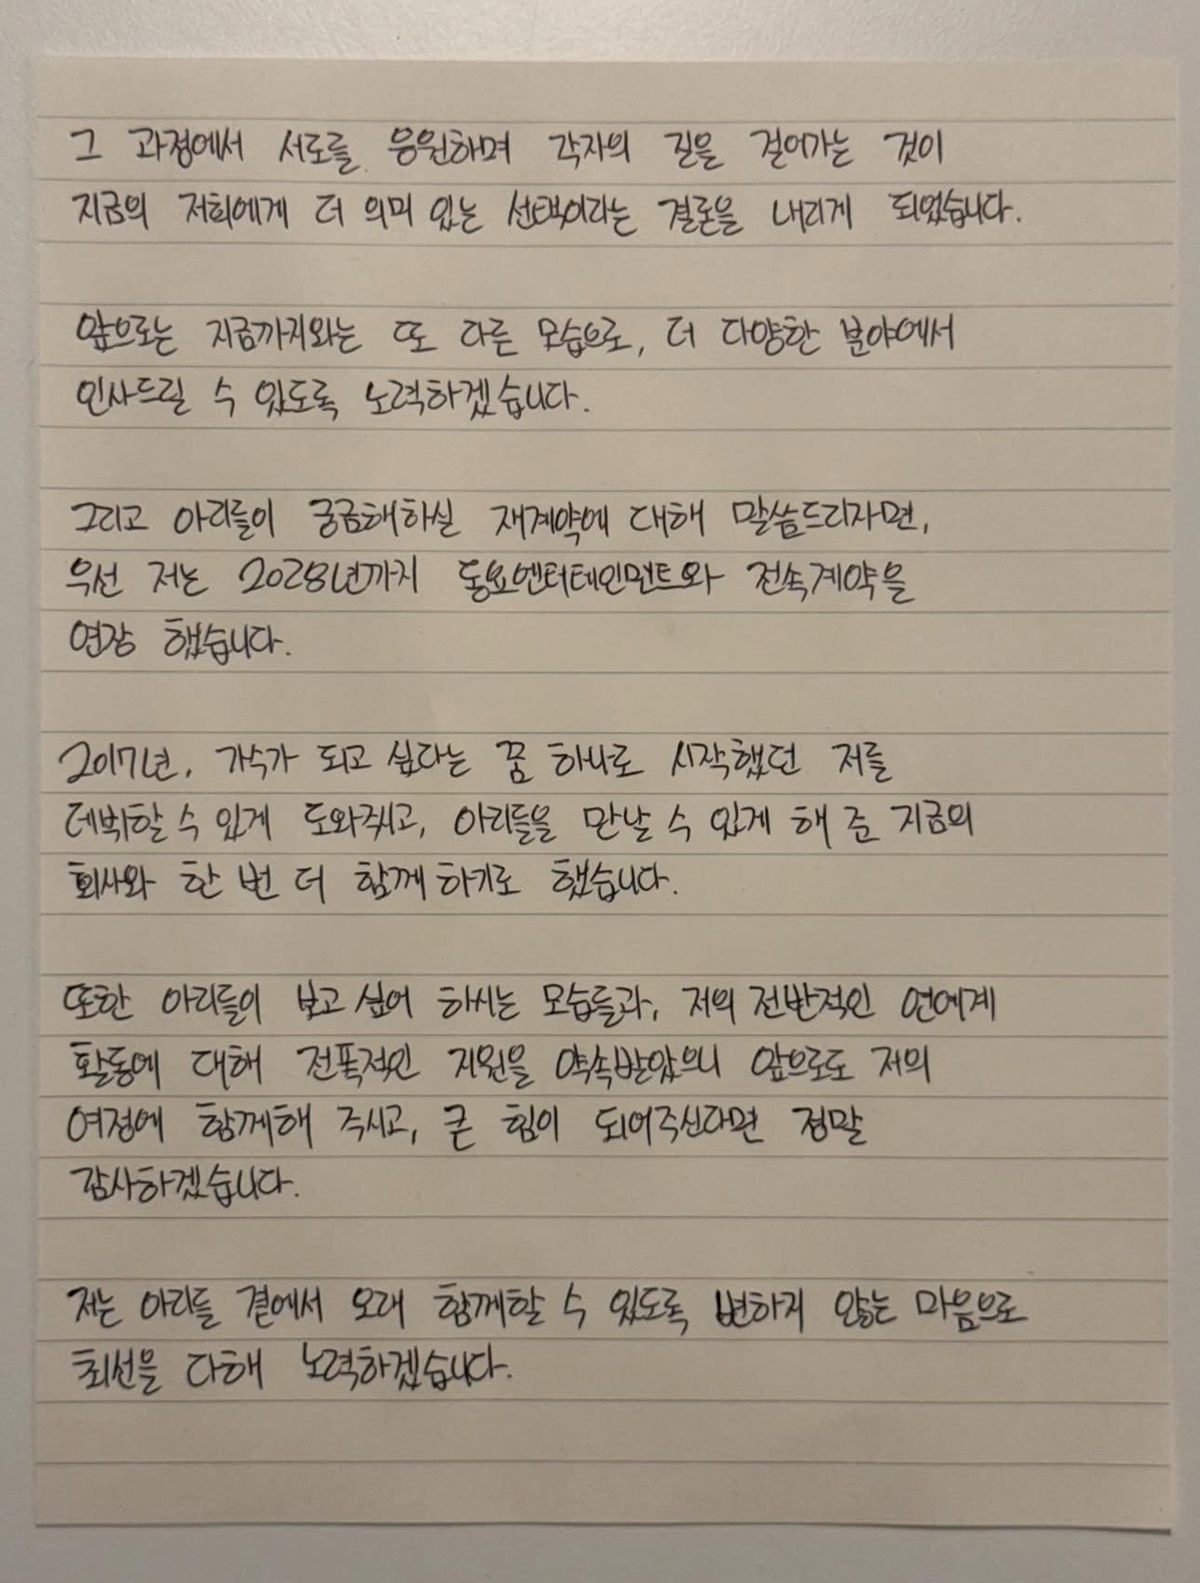 그 과정에서 서로를 응원하며 각자의 길을 걸어가는 것이
지금의 저희에게 더 의미 있는 선택이라는 결론을 내리게 되었습니다.
앞으로는 지금까지와는 또 다른 모습으로, 더 다양한 분야에서
인사드릴 수 있도록 노력하겠습니다.
그리고 아리들이 궁금해하실 재계약에 대해 말씀드리자면,
우선 저는 2028년까지 동요엔터테인먼트와 전속계약을
연장 했습니다.
2017년, 가수가 되고 싶다는 꿈 하나로 시작했던 저를
데뷔할 수 있게 도와주시고, 아리들을 만날 수 있게 해 준 지금의
회사와 한 번 더 함께 하기로 했습니다.
또한 아리들이 보고 싶어 하시는 모습들과, 저의 전반적인 연예계
활동에 대해 전폭적인 지원을 약속받았으니 앞으로도 저의
여정에 함께해 주시고, 큰 힘이 되어주신다면 정말
감사하겠습니다.
저는 아리들 곁에서 오래 함께할 수 있도록 변하지 않는 마음으로
최선을 다해 노력하겠습니다.